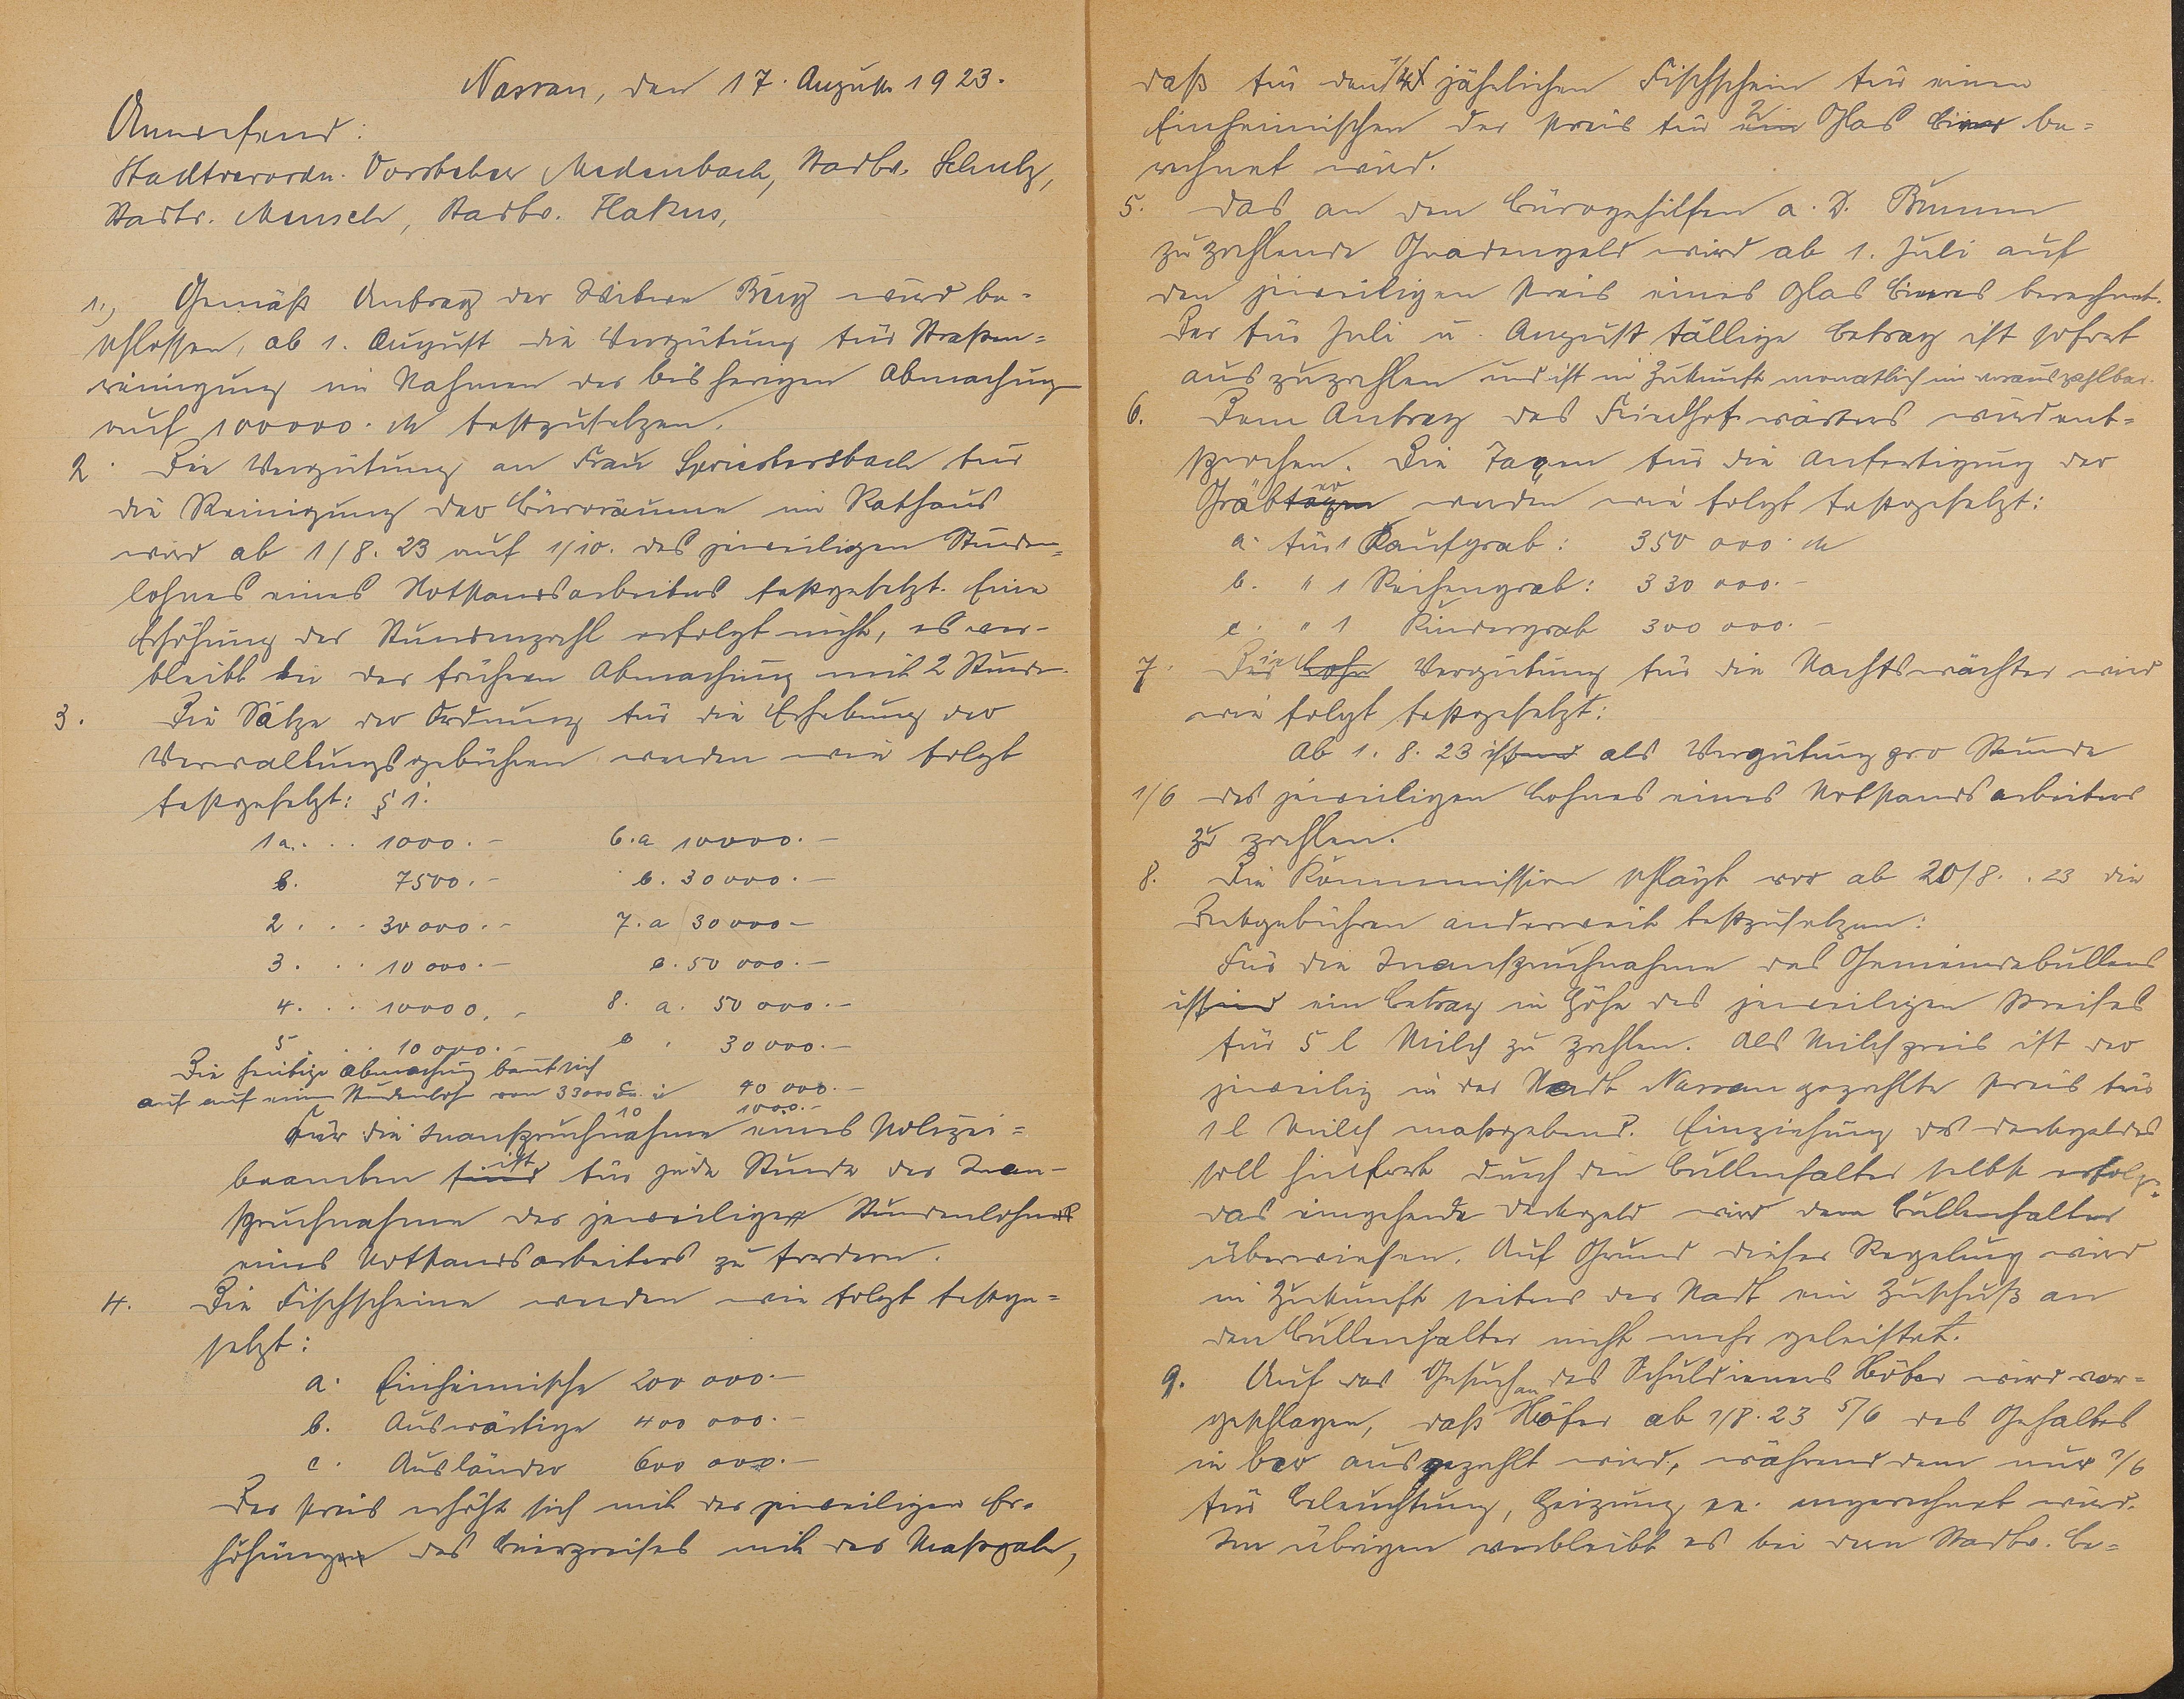 Nassau, den 17. August 1923.
Anwesend:
Stadtverordn. Vorsteher Medenbach, Stadtv. Schulz,
Stadtv. Mensch, Stadtv. Flakus,
1., Gemäß Antrag der Witwe Burg wird be-
schlossen, ab 1. August die Vergütung für Straßen-
reinigung im Rahmen der bisherigen Abmachung
auf 100000. M festzusetzen.
2. Die Vergütung an Frau Spriestersbach für
die Reinigung der Büroräume im Rathaus
wird ab 1/8. 23 auf 1/10. des jeweiligen Stunden-
lohnes eines Notstandsarbeiters festgesetzt. Eine
Erhöhung der Stundenzahl erfolgt nicht, es ver-
bleibt bei der frühern Abmachung mit 2 Stunden.
3. Die Sätze der Ordnung für die Erhebung der
Verwaltungsgebühren werden wie folgt
festgesetzt: § 1.
1a. . . 1000.- 6.a 10000.-
b. 7500.- b. 30000.-
2. . . 30000.- 7. a 30000-
3. . . 10000.- b. 50000.-
4. . . 10000.- 8. a. 50000.-
5. . . 10000.- b. 30000.-
Die heutige Abmachung baut sich
auf auf einen Stundenlohn von 33000 40000.-
10 1000.-
Für die Inanspruchnahme eines Polizei-
beamten sind ist für jede Stunde der Inan-
spruchnahme der jeweilige Stundenlohn
eines Notstandsarbeiters zu fordern.
4. Die Fischscheine werden wie folgt festge-
setzt:
a. Einheimische 200 000.-
b. Auswärtige 400 000.-
c. Ausländer 600 000.-
Der Preis erhöht sich mit der jeweiligen Er-
höhungen des Bierpreises mit der Maßgabe,
daß für den 1/4 jährlichen Fischschein für einen
Einheimischen der Preis für ein 2 Glas Bier be-
rechnet wird.
5. Das an den Bürogehilfen a. D. Bumm
zu zahlende Gnadengeld wird ab 1. Juli auf
den jeweiligen Preis eines Glas Bieres berechnet.
Der für Juli u. August fällige Betrag ist sofort
auszuzahlen und ist in Zukunft monatlich im voraus zahlbar.
6. Dem Antrag des Friedhofwärters wird ent-
sprochen. Die Taxen für die Anfertigung der
Gräbtaxen er werden wie folgt festgesetzt:
a. für 1 Kaufgrab: 350 000. M
b. " 1 Reihengrab: 330 000.-
c. " 1 Kindergrab 300 000.-
7. Die Lohn Vergütung für die Nachtswächter wird
wie folgt festgesetzt:
Ab 1. 8. 23 ist sind als Vergütung pro Stunde
1/6 des jeweiligen Lohnes eines Notstandsarbeiters
zu zahlen.
8. Die Kommmission schlägt vor ab 20/8. . 23 die
Deckgebühren anderweit festzusetzen:
Für die Inanspruchnahme des Gemeindebullens
ist sind ein Betrag in Höhe des jeweiligen Preises
für 5 l Milch zu zahlen. Als Milchpreis ist der
jeweilig in der Stadt Nassau gezahlte Preis für
1 l Milch maßgebend. Einziehung des Deckgeldes
soll hinfort durch den Bullenhalter selbst erfolgen.
das eingehende Deckgeld wird dem Bullenhalter
überwiesen. Auf Grund dieser Regelung wird
in Zukunft seitens der Stadt ein Zuschuß an
den Bullenhalter nicht mehr geleistet.
9. Auf das Gesuch des Schuldieners Höfer wird vor-
geschlagen, daß an Höfer ab 1/8. 23 5/6 des Gehaltes
in bar ausgezahlt wird, während dem nur 1/6
für Beleuchtung, Heizung pp. angerechnet wird.
Im übrigen verbleibt es bei dem Stadtv. Be-